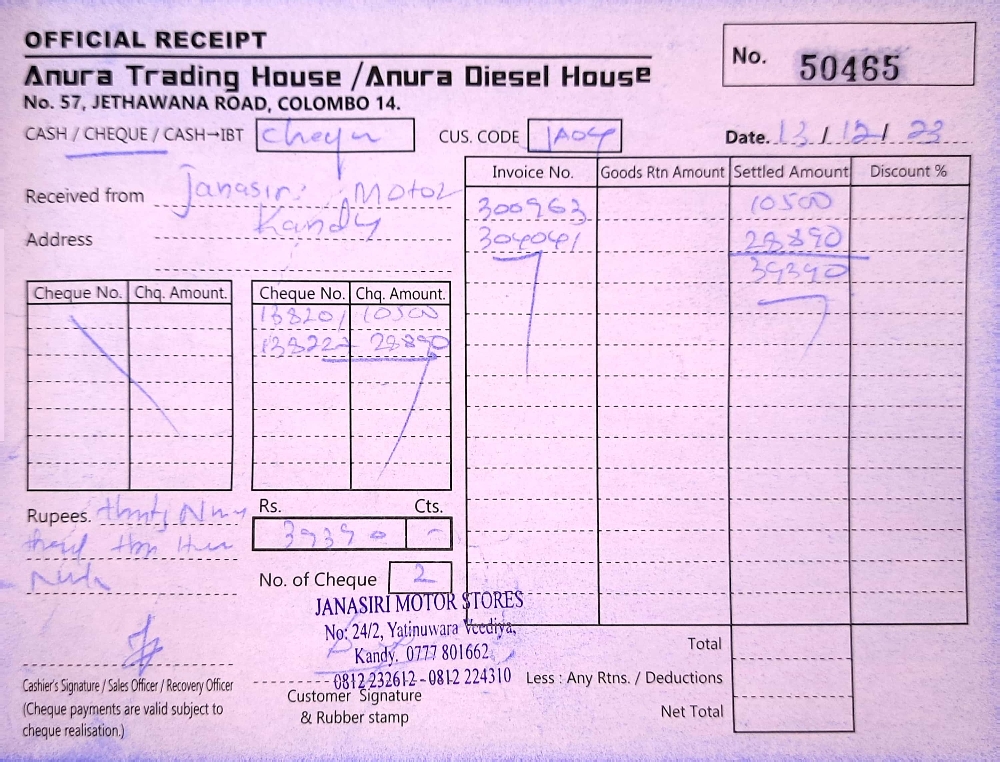 OFFICIAL RECEIPT
No. 50465
Anura Trading House / Anura Diesel House
No. 57, JETHAWANA ROAD, COLOMBO 14.
CASH / CHEQUE / CASH→IBT CUS. CODE JA04 Date. 13 / 12 / 23
Received from Janasiri Motor
Kandy
Address
Invoice No. Goods Rtn Amount Settled Amount Discount %
300963 10500
304041 28890
39390
Cheque No. Chq. Amount. Cheque No. Chq. Amount.
138201 10500
138222 28890
Rupees. Thirty
Rs. Cts.
39390 -
No. of Cheque 2
JANASIRI MOTOR STORES
No: 24/2, Yatinuwara Veediya,
Kandy. 0777 801662
0812 232612 - 0812 224310
Cashier's Signature / Sales Officer / Recovery Officer
(Cheque payments are valid subject to
cheque realisation.)
Customer Signature
& Rubber stamp
Total
Less : Any Rtns. / Deductions
Net Total